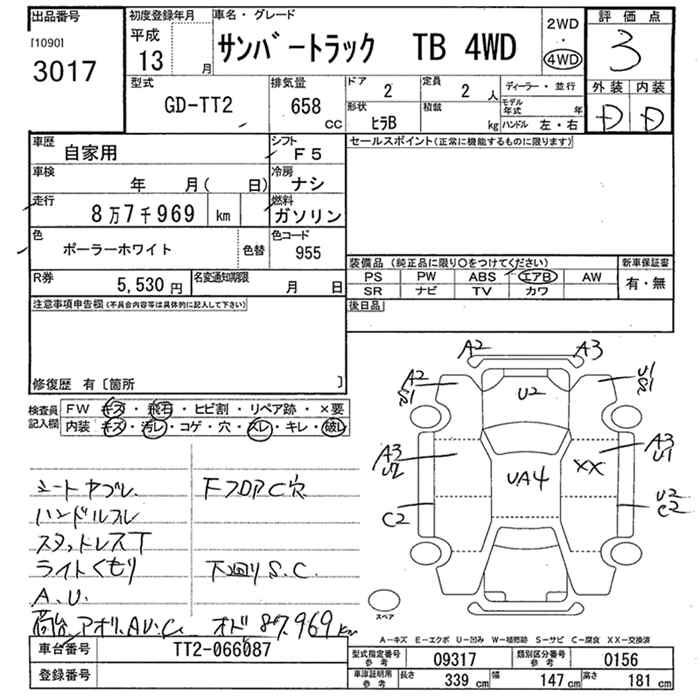 出品番号
[1090]
3017
初度登録年月
平成
13 月
車名・グレード
サンバートラック TB 4WD
2WD
・
4WD
評価点
3
外装 内装
D D
型式
GD-TT2
排気量
658 CC
ドア
2
定員
2 人
形状
ヒラB
積載
kg
ディーラー・並行
モデル年式 年
ハンドル 左・右
車歴
自家用
シフト
F5
車検
年 月( 日)
冷房
ナシ
走行
8万7千969 km
燃料
ガソリン
色
ポーラーホワイト
色替
色コード
955
R券
5,530 円
名変通知期限
月 日
セールスポイント(正常に機能するものに限ります)
装備品(純正品に限り〇をつけてください)
PS PW ABS エアB AW
SR ナビ TV カワ
新車保証書
有・無
後日品
注意事項申告欄(不具合内容等は具体的に記入して下さい)
修復歴 有〔箇所 〕
検査員記入欄
FW キズ・飛石・ヒビ割・リペア跡・×要
内装 キズ・汚レ・コゲ・穴・スレ・キレ・破レ
シートヤブレ
ハンドルスレ
スタットレスT
ライトくもり
A.U.
荷台 アオリ.AU.C
下フロアC穴
下廻りS.C.
オド 87.969 km
A2 A3
A2
S1
U2
U1
S1
A3
U2
UA4
XX
A3
U1
C2
U2
C2
スペア
A-キズ E-エクボ U-凹み W-補修跡 S-サビ C-腐食 XX-交換済
車台番号
TT2-066087
登録番号
型式指定番号
参考
09317
類別区分番号
参考
0156
車庫証明用
参考
長さ 339 cm
幅 147 cm
高さ 181 cm